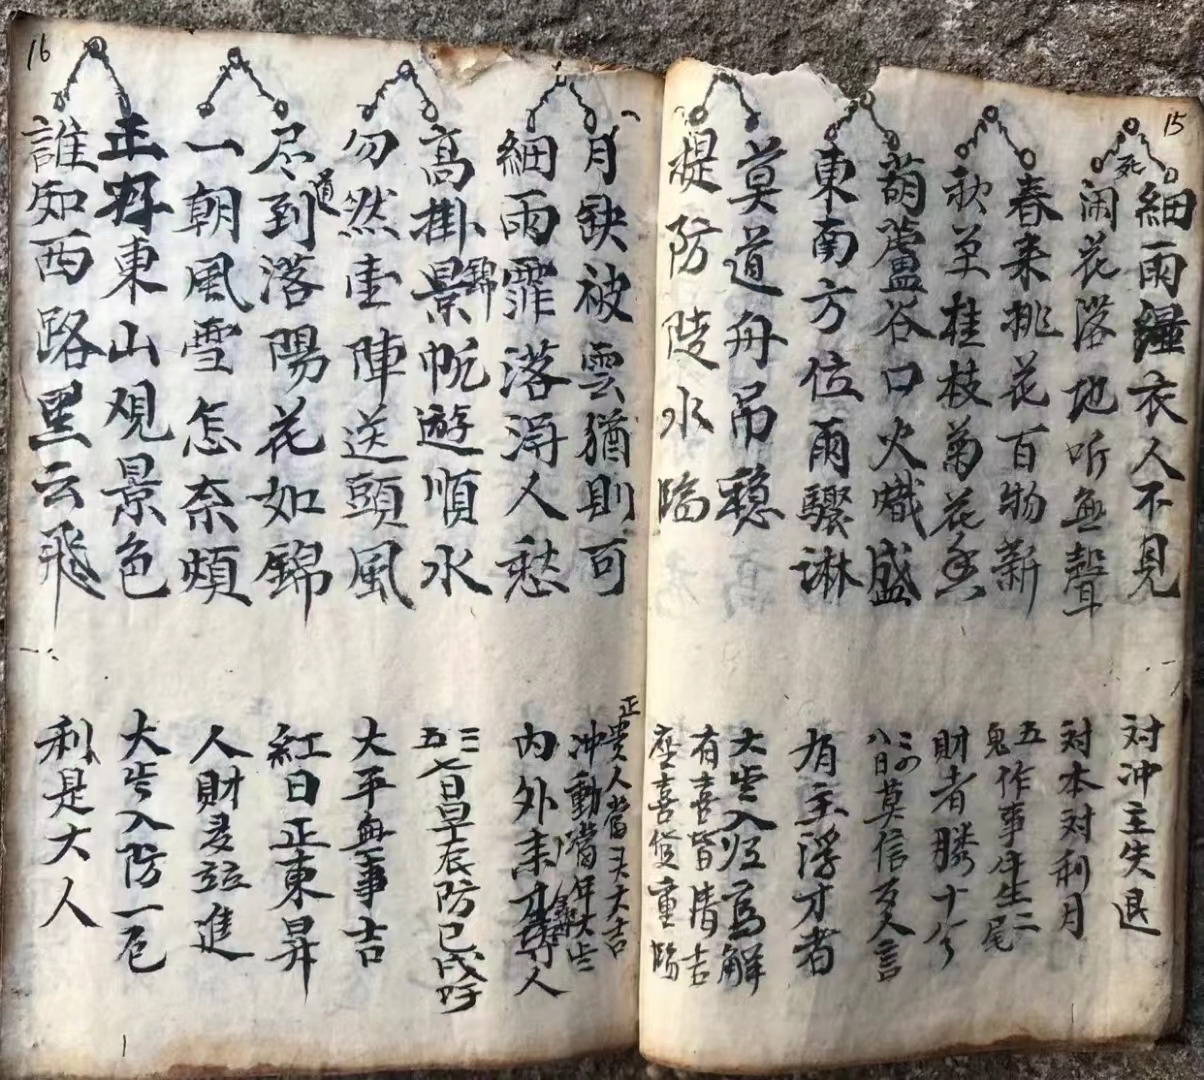 15
死
細雨濕衣人不見
闹花落地听無聲
春来桃花百物新
秋至桂枝菊花香
葫蘆谷口火熾盛
東南方位雨驟淋
莫道舟吊穩
提防陵水臨
对冲主失退
对本对利月
五作事牛生二
鬼尾
財者勝十分
三四
八日莫信友人言
有主浮才者
大出入归焉解
有喜皆清吉
座喜俊重臨
16
月缺被雲猶則可
細雨霏落淂人愁
高掛景帆遊順水
錦
勿然壹陣送頭風
尽到落陽花如錦
道
一朝風雪怎奈煩
正好東山观景色
誰知西路黑云飛
正貴人當头大吉
冲動當年大出
内外未才尊人
五七日皇辰防已戌好
大平無事吉
紅日正東昇
人財多竝進
大出入防一厄
利是大人